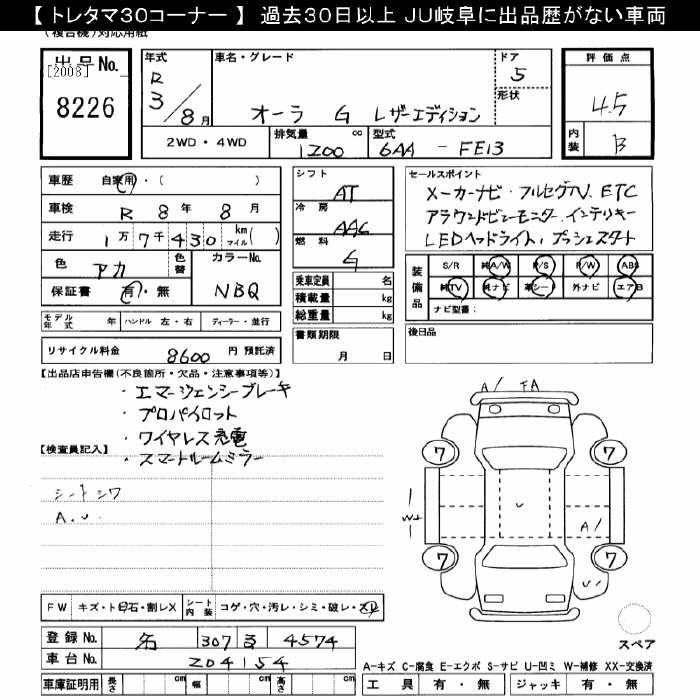 【トレタマ30コーナー】 過去30日以上 JU岐阜に出品歴がない車両
(複合機)対応用紙
出品No.
[2008]
8226
年式
R
3/8月
車名・グレード
オーラ G レザーエディション
ドア
5
形状
評価点
4.5
内装
B
2WD・4WD
排気量 cc
1200
型式
6AA - FE13
車歴 自家用・( )
車検 R 8年 8月
走行 1万7千430 km マイル( )
色 アカ
色替
カラーNo.
NBQ
保証書 有・無
モデル年式 年 ハンドル 左・右 ディーラー・並行
リサイクル料金 8600 円 預託済
シフト
AT
冷房
AAC
燃料
G
乗車定員 名
積載量 kg
総重量 kg
書類期限
月 日
セールスポイント
メーカーナビ・フルセグTV、ETC
アラウンドビューモニター、インテリキー
LEDヘッドライト、プッシュスタート
装備品
S/R 純A/W P/S P/W ABS
純TV 純ナビ 革シート 外ナビ エアB
ナビ型番:
後日品
【出品店申告欄(不良箇所・欠品・注意事項等)】
・エマージェンシーブレーキ
・プロパイロット
・ワイヤレス充電
・スマートルームミラー
【検査員記入】
シートシワ
A.U.
A/ FA
7 7
W1
U
A/
7 7
U
スペア
FW キズ・ト石・割レX シート内装 コゲ・穴・汚レ・シミ・破レ・スレ
登録No. 名 307 る 4574
車台No. 204154
車庫証明用 長さ cm 幅 cm 高さ cm
A-キズ C-腐食 E-エクボ S-サビ U-凹ミ W-補修 XX-交換済
工具 有・無 ジャッキ 有・無